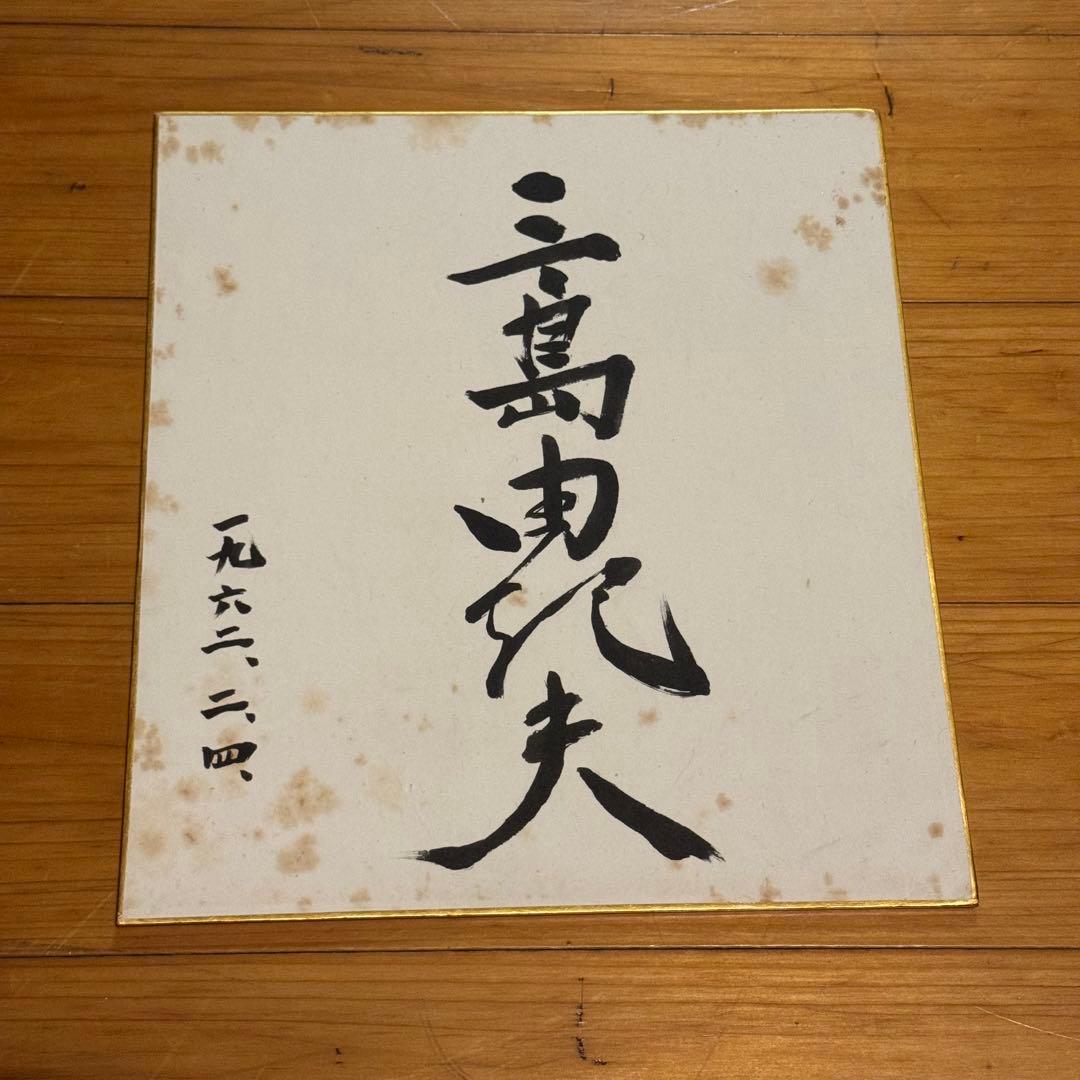 三島由紀夫
一九六二、二、四、